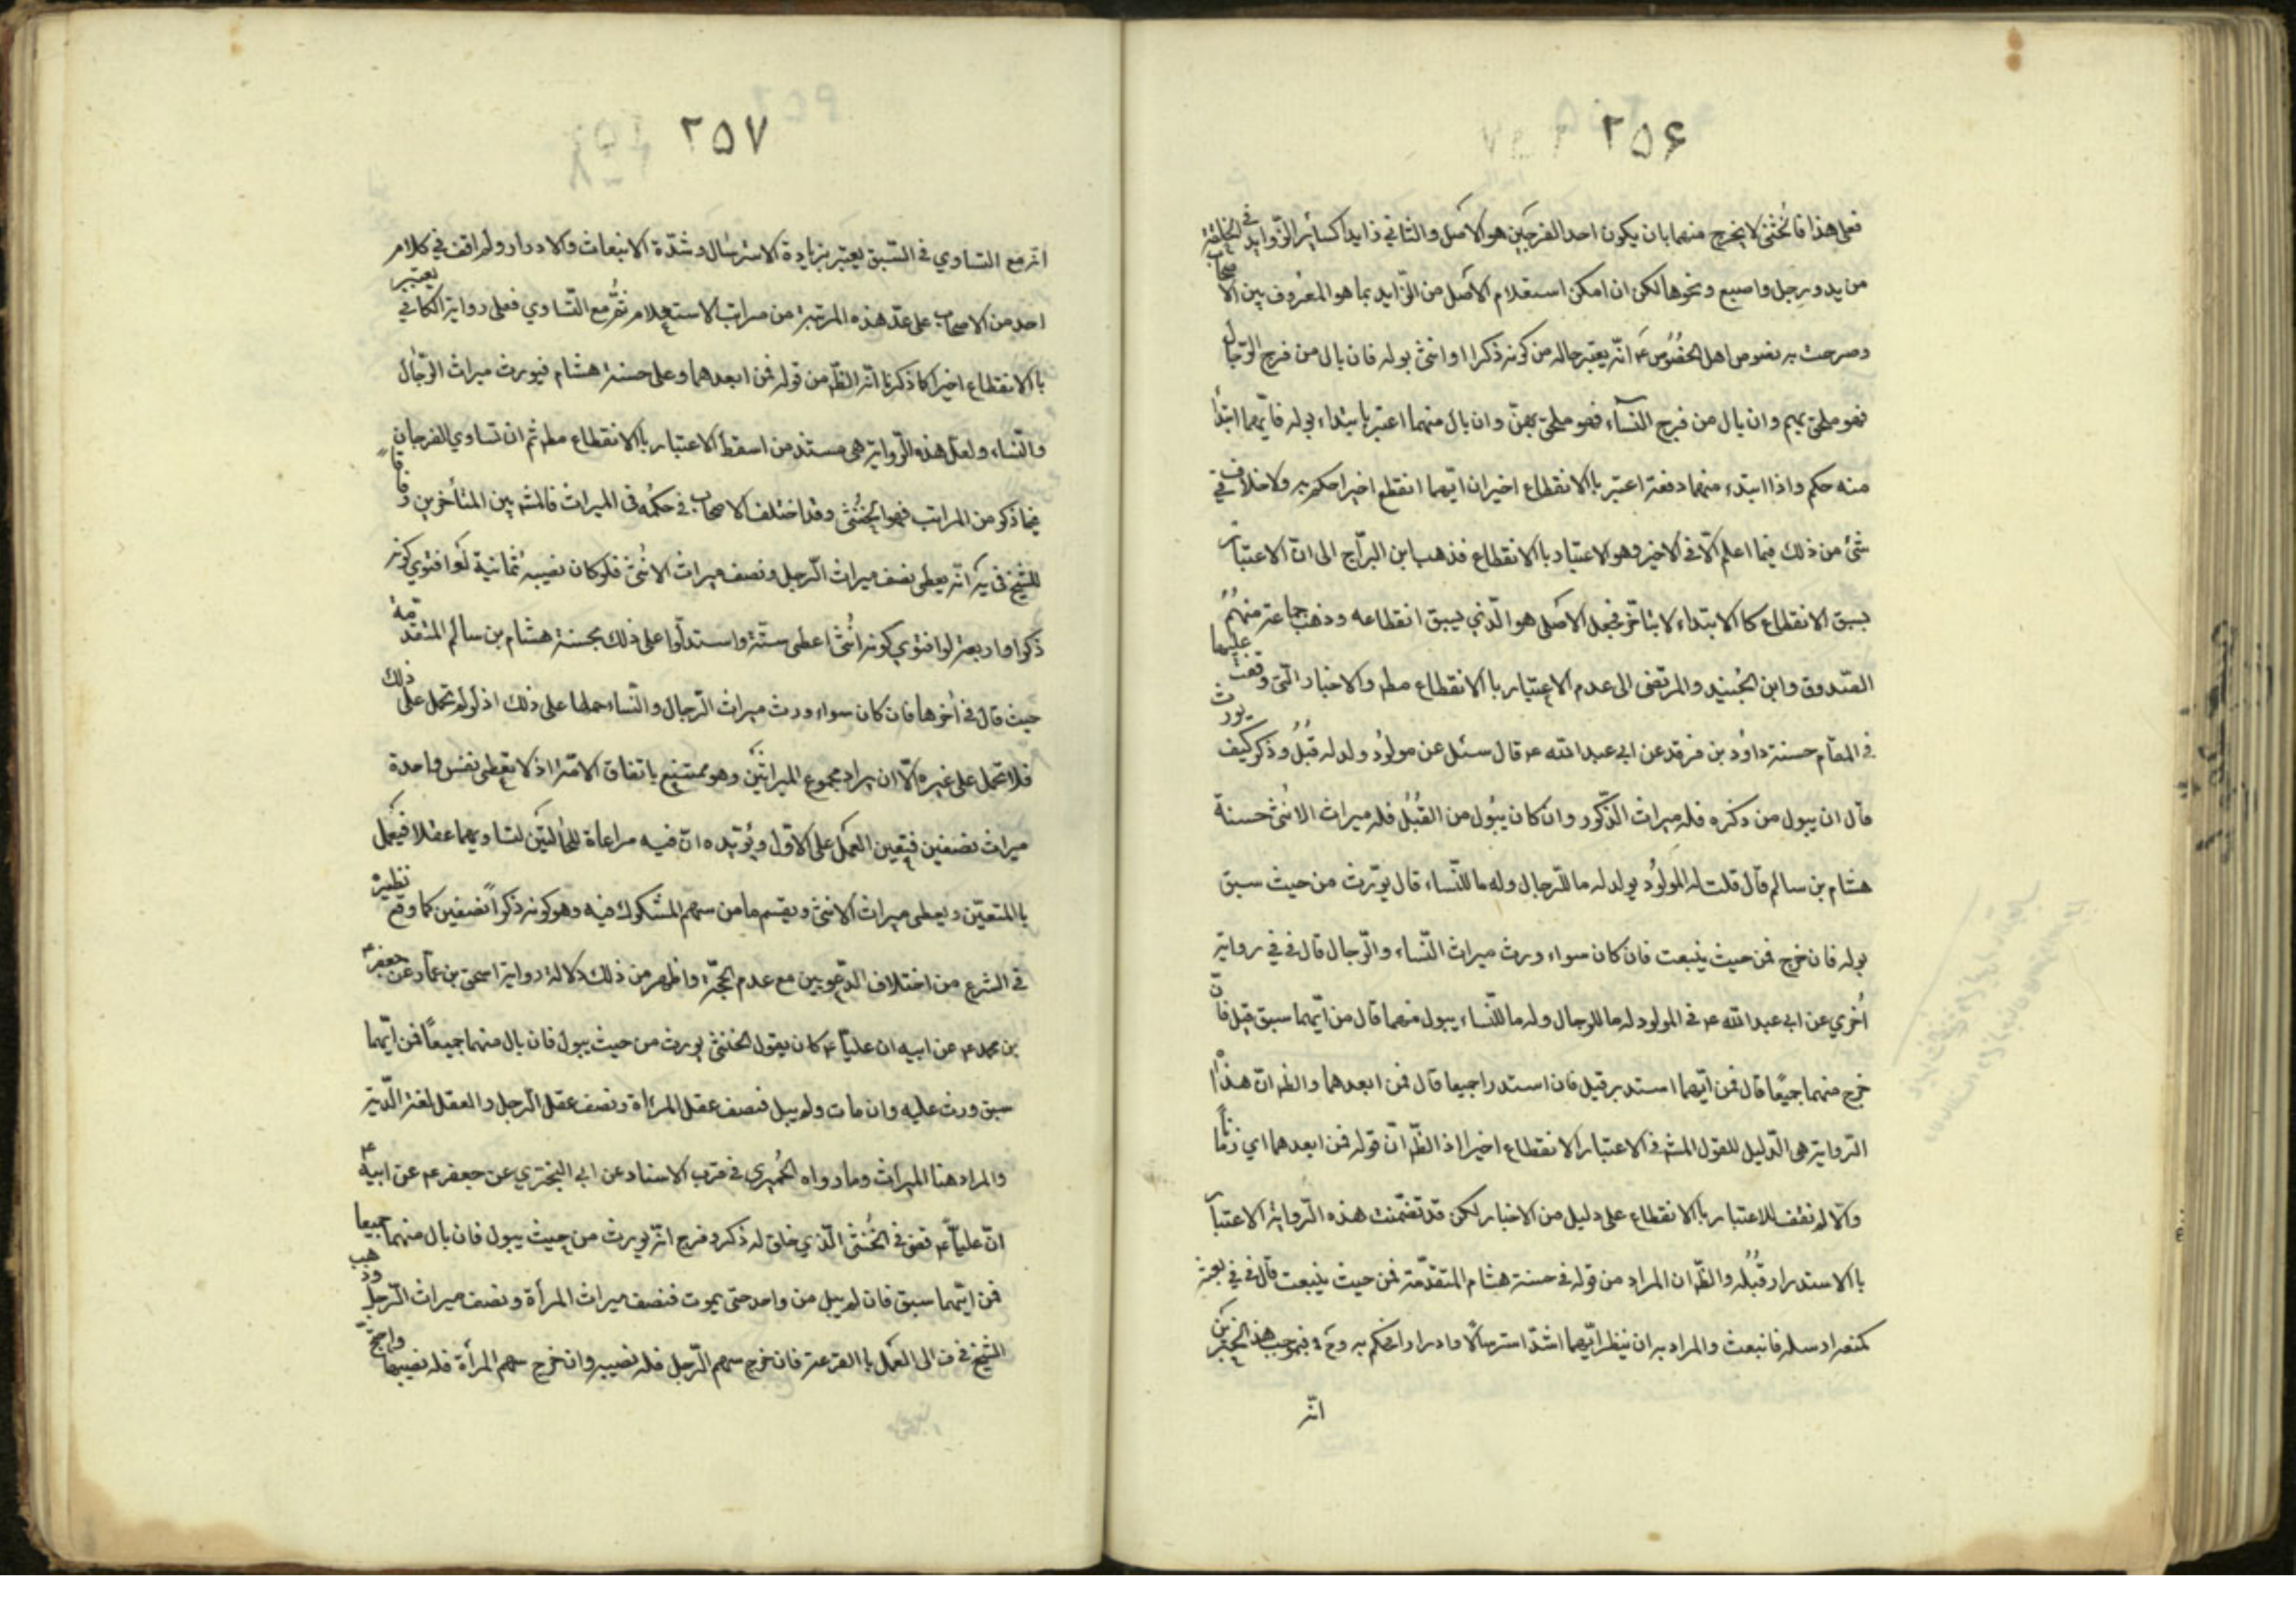 ٢٥۶
فعلى هذا فالخنثى لا يخرج منهما بان يكون احد الفرجين هو الاصل والثاني زايدا كسائر الزّوايد في الخلقة
من يد ورجل واصبع ونحوها لكن ان امكن استعلام الاصل من الزّايد بما هو المعروف بين الاصحاب
وصرحت به نصوص اهل الخصوص ع انّه يعتبر حاله من كونه ذكرا او انثى ببوله فان بال من فرج الرّجال
فهو ملحق بهم وان بال من فرج النّساء فهو ملحق بهنّ وان بال منهما اعتبر بابتداء بوله فايّهما ابتدأ
منه حكم واذا ابتدء منهما دفعة اعتبر بالانقطاع اخيرا ايّهما انقطع اخيرا حكم به ولا خلاف في
شئ من ذلك فيما اعلم الّا في الاخير وهو الاعتبار بالانقطاع فذهب ابن البرّاج الى انّ الاعتبار
بسبق الانقطاع كالابتداء لا بتاخّر فجعل الاصلى هو الّذي يسبق انقطاعه وذهب جماعة منهم
الصّدوق وابن الجنيد والمرتضى الى عدم الاعتبار بالانقطاع مطم والاخبار الّتي وقفت عليها
في المقام حسنة داود بن فرقد عن ابي عبدالله ع قال سئل عن مولود ولد له قُبُل وذكر كيف يورث
قال ان يبول من ذكره فله ميراث الذّكور وان كان يبول من القُبُل فله ميراث الانثى حسنة
هشام بن سالم قال قلت له المولود يولد له ما للرّجال وله ما للنّساء قال يورّث من حيث سبق
بوله فان خرج فمن حيث ينبعت فان كان سواء ورث ميراث النّساء والرّجال قال في في رواية
اُخرى عن ابي عبدالله ع في المولود له ما للرجال وله ما للنّساء يبول منهما قال من ايّهما سبق قيل فان
خرج منهما جميعًا قال فمن ايّهما استدبر قيل فان استدرا جميعا قال فمن ابعدهما والظ انّ هذه
الرّواية هي الدّليل للقول المشه في الاعتبار الانقطاع اخيرا اذ الظّ انّ قوله فمن ابعدهما اي زمانًا
والّا لم نقف للاعتبار بالانقطاع على دليل من الاخبار لكن قد تضمّنت هذه الرّواية الاعتبار
بالاستدرار قبله والظّ ان المراد من قوله في حسنة هشام المتقدّمة فمن حيث ينبعت قال في
كمنعه ارسله فانبعث والمراد به ان ينظر ايّهما اشدّ استرسالًا وادرارا فيحكم به وح فبموجب هذا الخبرين
انّه
٢٥٧
انّه مع التساوي في السّبق يعتبر بزيادة الاسترسال وشدّة الانبعاث والادرار ولم اقف في كلام
احد من الاصحاب على عدّ هذه المرتبة من مراتب الاستعلام ثمّ مع التّساوي فعلى رواية الكافي يعتبر
بالانقطاع اخيرا كما ذكرنا انّه الظّ من قوله فمن ابعدهما وعلى حسنة هشام فيورث ميراث الرّجال
والنّساء ولعلّ هذه الرّواية هي مستند من اسقط الاعتبار بالانقطاع مطم ثم ان تساوي الفرجان
فيما ذكر من المراتب فهو الخنثى وقد اختلف الاصحاب في حكمه في الميراث فالمشه بين المتأخرين وفاقا
للشيخ في يه انّه يعطى نصف ميراث الرّجل ونصف ميراث الانثى فلو كان نصيبه ثمانية لو افتوي كونه
ذكرا واربعة لو افتوي كونه انثى اعطى ستّة واستدلّوا على ذلك بحسنة هشام بن سالم المتقدّمة
حيث قال في اخرها فان كان سواء ورث ميراث الرّجال والنّساء حملها على ذلك اذ لو لم تحمل على ذلك
فلا تحمل على غيره الّا ان يراد مجموع الميراثين وهو ممتنع باتفاق الامّة اذ لا يعطى نفس واحدة
ميراث نصفين فتعين العمل على الاوّل ويؤيّده انّ فيه مراعاة للحالتين لتساويهما عقلا فيعمل
بالمتعيّن ويعطى ميراث الانثى ويقسم ما من سهم المشكوك فيه وهو كونه ذكرًا نصفين كما وقع نظيره
في الشرع من اختلاف الدّعويين مع عدم الحجّة واظهر من ذلك دلالة رواية اسحق بن عمّار عن جعفر
بن محمد ع عن ابيه ان عليًّا ع كان يقول الخنثى يورث من حيث يبول فان بال منهما جميعًا فمن ايّهما
سبق ورث عليه وان مات ولم يبل فنصف عقل المرءاة ونصف عقل الرجل والعقل لغة الدّية
والمراد هنا الميراث وما رواه الحميري في قرب الاسناد عن ابي البختري عن جعفر ع عن ابيه ع
انّ عليًّا ع قضى في الخنثى الّذي خلق له ذكر وفرج انّه يورث من حيث يبول فان بال منهما جميعا
فمن ايّهما سبق فان لم يبل من واحد حتى يموت فنصف ميراث المرأة ونصف ميراث الرّجل وذهب
الشيخ في ف الى العمل بالقرعة فان خرج سهم الرّجل فله نصيبه وان خرج سهم المرأة فله نصيبها واحتجّ